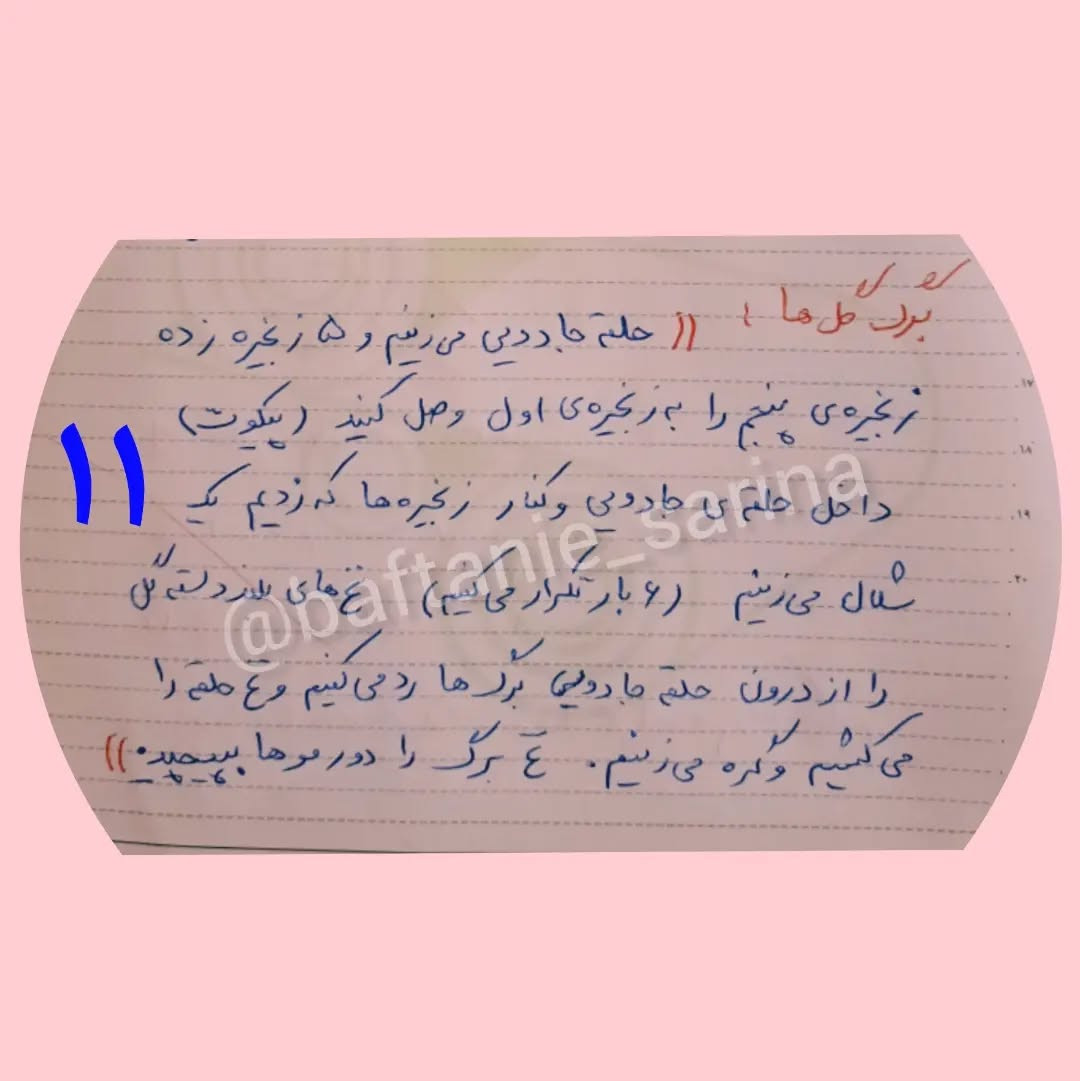 برگ گل ها : (( حلقه جادویی می زنیم و ۵ زنجیره زده
زنجیره ی پنجم را به زنجیره ی اول وصل کنید (پیکوت)
داخل حلقه ی جادویی و کنار زنجیره ها که زدیم یک
شلال می زنیم (۶ بار تکرار می کنیم) نخ های بلند دسته گل
را از درون حلقه جادویی برگ ها رد می کنیم و نخ حلقه را
می کشیم و گره می زنیم. نخ برگ را دور موها بپیچید. ))
۱۱
۱۷
۱۸
۱۹
۲۰
@baftanie_sarina